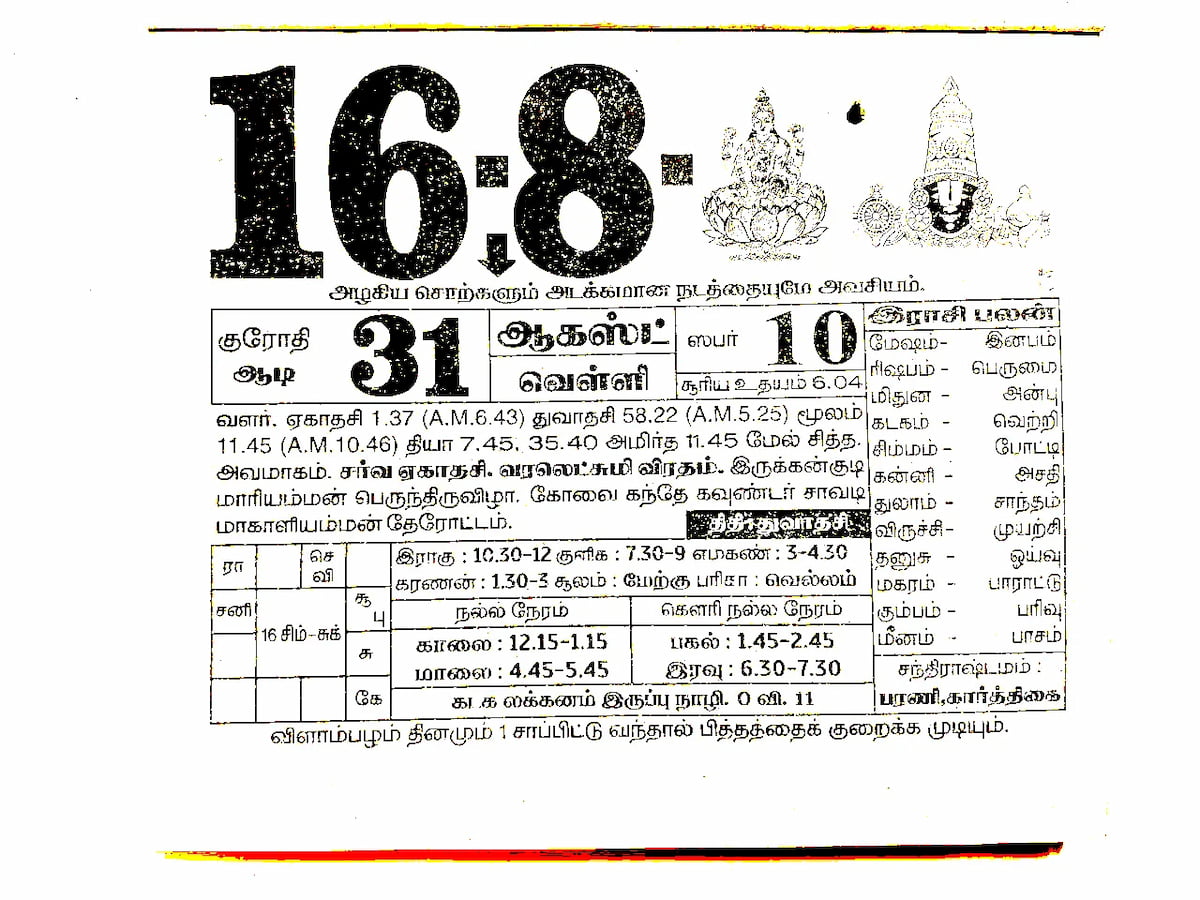 16-8-
அழகிய சொற்களும் அடக்கமான நடத்தையுமே அவசியம்.
குரோதி
ஆடி
31
ஆகஸ்ட்
வெள்ளி
ஸபர்
10
சூரிய உதயம் 6.04
வளர். ஏகாதசி 1.37 (A.M.6.43) துவாதசி 58.22 (A.M.5.25) மூலம்
11.45 (A.M.10.46) தியா 7.45, 35.40 அமிர்த 11.45 மேல் சித்த.
அவமாகம். சர்வ ஏகாதசி. வரலெட்சுமி விரதம். இருக்கன்குடி
மாரியம்மன் பெருந்திருவிழா. கோவை கந்தே கவுண்டர் சாவடி
மாகாளியம்மன் தேரோட்டம்.
திதி:துவாதசி
ரா
செ
வி
சனி
16 சிம்-சுக்
சூ
பு
சு
கே
இராகு : 10.30-12 குளிக : 7.30-9 எமகண் : 3-4.30
கரணன் : 1.30-3 சூலம் : மேற்கு பரிகா : வெல்லம்
நல்ல நேரம்
காலை : 12.15-1.15
மாலை : 4.45-5.45
கௌரி நல்ல நேரம்
பகல் : 1.45-2.45
இரவு : 6.30-7.30
கடக லக்கனம் இருப்பு நாழி. 0 வி. 11
இராசி பலன்
மேஷம்- இன்பம்
ரிஷபம் - பெருமை
மிதுன - அன்பு
கடகம் - வெற்றி
சிம்மம் - போட்டி
கன்னி - அசதி
துலாம் - சாந்தம்
விருச்சி- முயற்சி
தனுசு - ஓய்வு
மகரம் - பாராட்டு
கும்பம் - பரிவு
மீனம் - பாசம்
சந்திராஷ்டமம் :
பரணி,கார்த்திகை
விளாம்பழம் தினமும் 1 சாப்பிட்டு வந்தால் பித்தத்தைக் குறைக்க முடியும்.